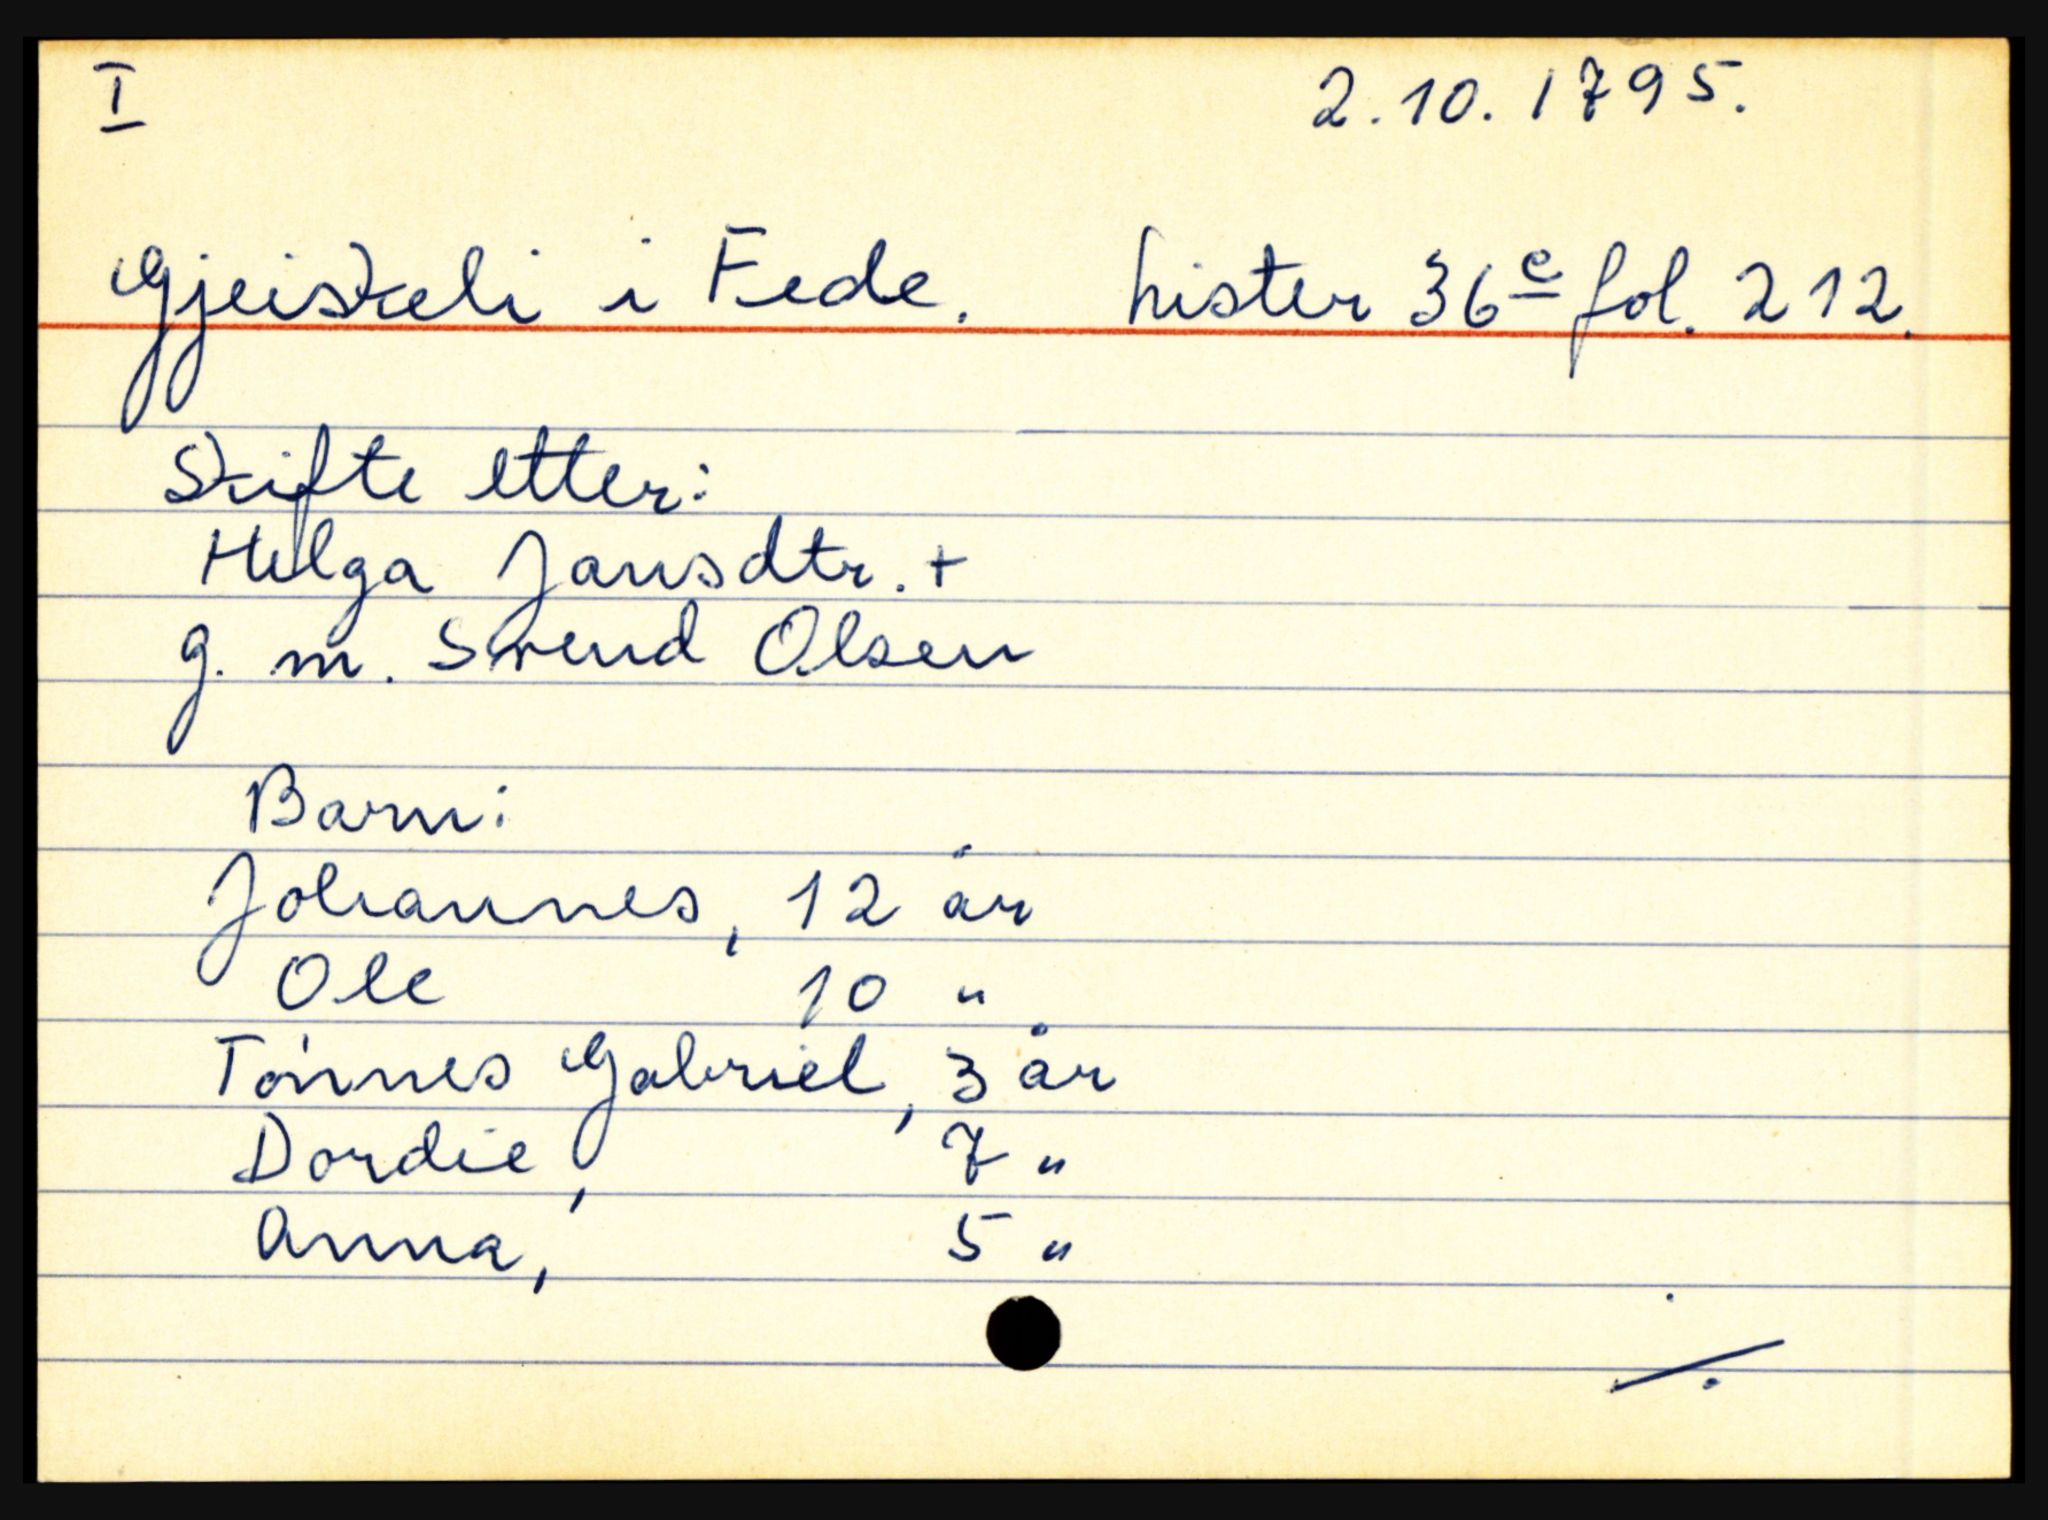 I 2.10.1795.
Gjeiskeli i Fede. Lister 36e fol. 212.
Skifte etter:
Helga Jansdtr. +
g. m. Svend Olsen
Barn:
Johannes, 12 år
Ole 10 "
Tönnes Gabriel, 3 år
Dordie, 7 "
Anna, 5 "